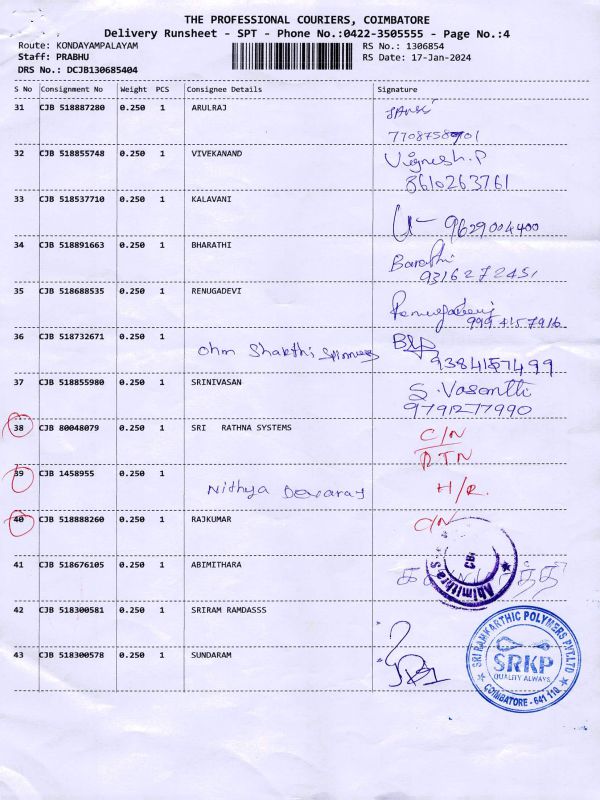 THE PROFESSIONAL COURIERS, COIMBATORE
Delivery Runsheet - SPT - Phone No.:0422-3505555 - Page No.:4
Route: KONDAYAMPALAYAM RS No.: 1306854
Staff: PRABHU RS Date: 17-Jan-2024
DRS No.: DCJB130685404
S No Consignment No Weight PCS Consignee Details Signature
31 CJB 518887280 0.250 1 ARULRAJ
32 CJB 518855748 0.250 1 VIVEKANAND Vignesh.P
8610263761
33 CJB 518537710 0.250 1 KALAVANI
9629004400
34 CJB 518891663 0.250 1 BHARATHI Barathi
9316272451
35 CJB 518688535 0.250 1 RENUGADEVI Renugadevi
9994157916
36 CJB 518732671 0.250 1
Ohm Shakthi Spinners
9384157499
37 CJB 518855980 0.250 1 SRINIVASAN S. Vasanthi
9791277990
38 CJB 80048079 0.250 1 SRI RATHNA SYSTEMS C/N
RTN
39 CJB 1458955 0.250 1
Nithya Devaraj H/R.
40 CJB 518888260 0.250 1 RAJKUMAR C/N
41 CJB 518676105 0.250 1 ABIMITHARA
Abimithra
42 CJB 518300581 0.250 1 SRIRAM RAMDASSS
43 CJB 518300578 0.250 1 SUNDARAM
SRI RAM KARTHIC POLYMERS PVT.LTD
SRKP
QUALITY ALWAYS
COIMBATORE - 641 110